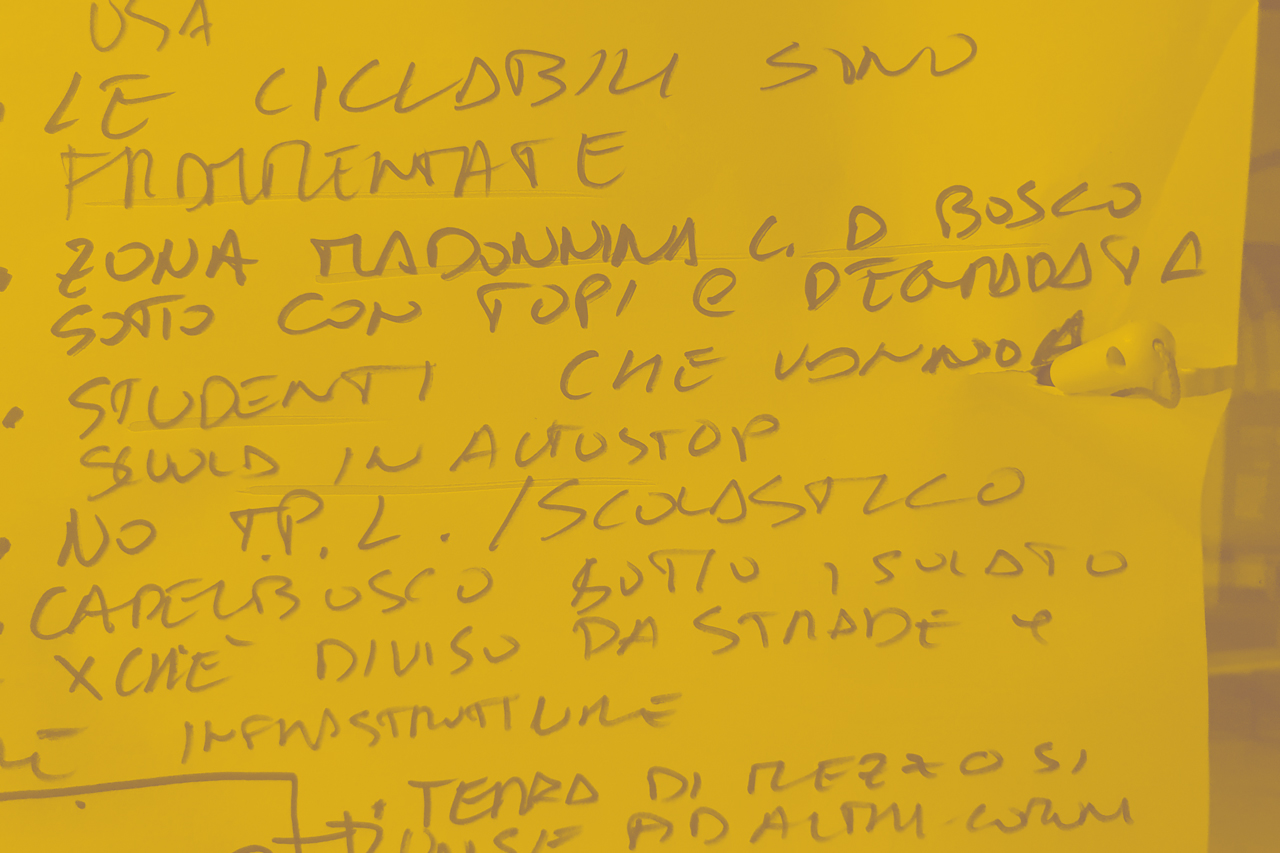 USA
LE CICLABILI SONO
FRAMMENTATE
ZONA MADONNINA C. D BOSCO
SOTTO CON TOPI e DEGRADATA
STUDENTI CHE VANNO A
SCUOLA IN AUTOSTOP
NO T.P.L. / SCOLASTICO
CADELBOSCO SOTTO ISOLATO
XCHÈ DIVISO DA STRADE e
INFRASTRUTTURE
TERRA DI MEZZO SI
AD ALTRI COMUNI